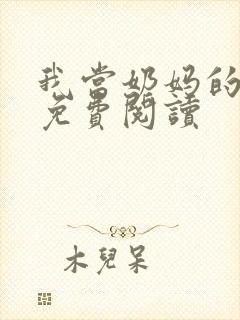 我當奶媽的
免費閱讀
木兒呆